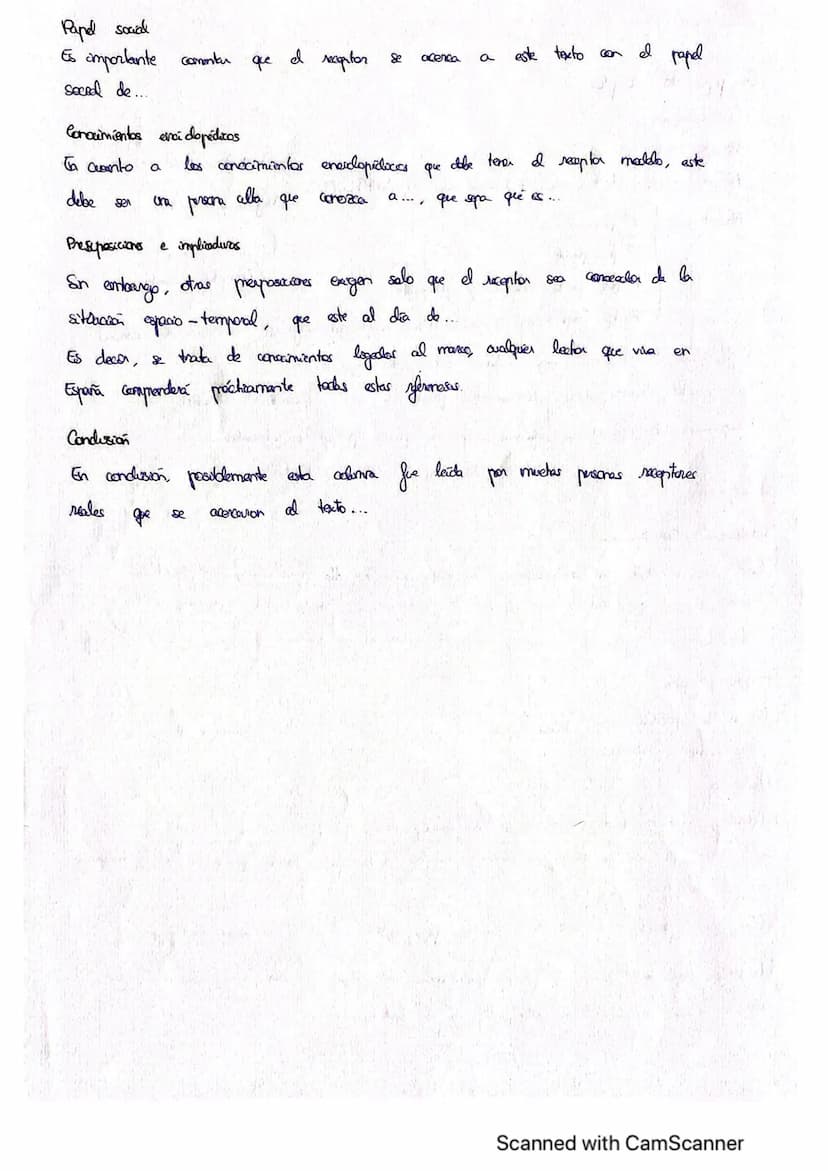 Papel social
Es importante comentar que el receptor se acerca a este texto con el papel
social de...
Conocimientos enciclopédicos
En cuanto a los conocimientos enciclopédicos que debe tener el receptor modelo, este
debe ser una persona culta que conozca a..., que sepa qué es...
Presuposiciones e implicaturas
Sin embargo, otras presuposiciones exigen solo que el receptor sea conocedor de la
situación espacio-temporal, que este al día de...
Es decir, se trata de conocimientos ligados al marco, cualquier lector que viva en
España comprenderá prácticamente todas estas referencias.
Conclusión
En conclusión, posiblemente esta columna fue leída por muchas personas receptores
reales que se acercaron al texto...
Scanned with CamScanner